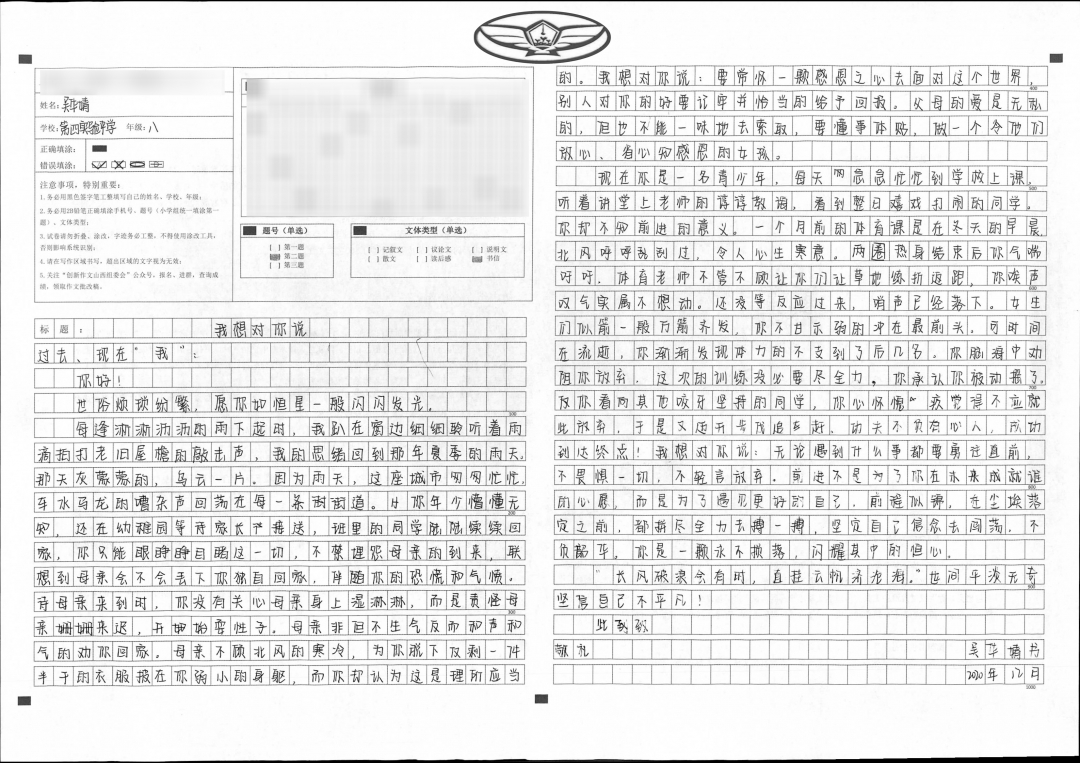 姓名：吴华婧
学校：第四实验中学 年级：八
正确填涂：
错误填涂：
注意事项，特别重要：
1.务必用黑色签字笔工整填写自己的姓名、学校、年级；
2.务必用2B铅笔正确填涂手机号、题号（小学组统一填涂第一
题）、文体类型；
3.试卷请勿折叠、涂改，字迹务必工整，不得使用涂改工具，
否则影响系统识别；
4.请在写作区域书写，超出区域的文字视为无效；
5.关注“创新作文山西组委会”公众号，报名、进群、查询成
绩、领取作文批改稿。
题号（单选）
[ ] 第一题
第二题
[ ] 第三题
文体类型（单选）
[ ] 记叙文 [ ] 议论文 [ ] 说明文
[ ] 散文 [ ] 读后感 书信
标 题： 我想对你说
过去、现在“我”：
你好！
世俗烦琐纷繁，愿你如恒星一般闪闪发光。
100
每逢淅淅沥沥的雨下起时，我趴在窗边细细聆听着雨
滴拍打老旧屋檐的敲击声，我的思绪回到那年夏季的雨天。
那天灰蒙蒙的，乌云一片。因为雨天，这座城市匆匆忙忙，
车水马龙的嘈杂声回荡在每一条街道。你年少懵懂无
200
知，还在幼稚园等待家长接送，班里的同学陆陆续续回
家，你只能眼睁睁目睹这一切，不禁埋怨母亲的到来，联
想到母亲会不会丢下你独自回家，伴随你的恐慌和气愤。
待母亲来到时，你没有关心母亲身上湿淋淋，而是责怪母
300
亲姗姗来迟，开始耍性子。母亲非但不生气反而和声和
气的劝你回家。母亲不顾北风的寒冷，为你脱下仅剩一件
半干的衣服披在你弱小的身躯，而你却认为这是理所应当
的。我想对你说：要常怀一颗感恩之心去面对这个世界，
400
别人对你的好要记牢并恰当的给予回报。父母的爱是无私
的，但也不能一味地去索取，要懂事体贴，做一个令他们
放心、省心知感恩的女孩。
现在你是一名青少年，每天急急忙忙到学校上课，
500
听着讲堂上老师的谆谆教诲，看到整日嬉戏打闹的同学。
你却不知前进的意义。一个月前的体育课是在冬天的早晨，
北风呼呼乱刮过，令人心生寒意。两圈热身结束后你气喘
吁吁，体育老师不管不顾让你们让草地练折返跑，你唉声
600
叹气实属不想动。还没等反应过来，哨声已经落下。女生
们似箭一般万箭齐发，你不甘示弱的冲在最前头。可时间
在流逝，你渐渐发现体力的不支到了后几名。你脑海中劝
阻你放弃，这次的训练没必要尽全力。你承认你被动摇了。
700
反你看向其他咬牙坚持的同学，你心怀愧疚觉得不应就
此放弃，于是又迈开步伐追赶，功夫不负有心人，成功
到达终点！我想对你说：无论遇到什么事都要勇往直前，
不畏惧一切，不轻言放弃。前进不是为了你在未来成就谁
800
的心愿，而是为了遇见更好的自己，前程似锦，在尘埃落
定之前，都拼尽全力去搏一搏，坚定自己信念去闯荡，不
负韶华。你是一颗永不掷落，闪耀其中的恒心。
“长风破浪会有时，直挂云帆济沧海。”世间平淡无奇
900
坚信自己不平凡！
此致
敬礼 吴华婧书
2020年12月
1000